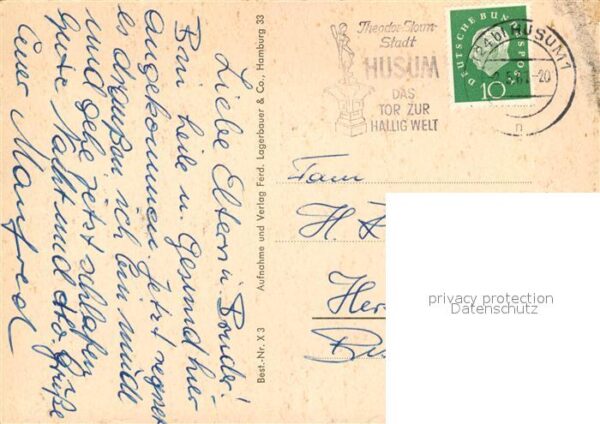 Liebe Eltern u. Bruder!
Bin heile u. gesund hier
angekommen. Jetzt regnet
es draußen ich bin müde
und gehe jetzt schlafen
Gute Nacht und Grüße
Euer Manfred
Best.-Nr. X 3 Aufnahme und Verlag Ferd. Lagerbauer & Co., Hamburg 33
Theodor-Storm-
Stadt
HUSUM
DAS
TOR ZUR
HALLIG WELT
DEUTSCHE BUNDESPOST
10
(24b) HUSUM 1
-20
n
Fam
H.
Her
privacy protection
Datenschutz